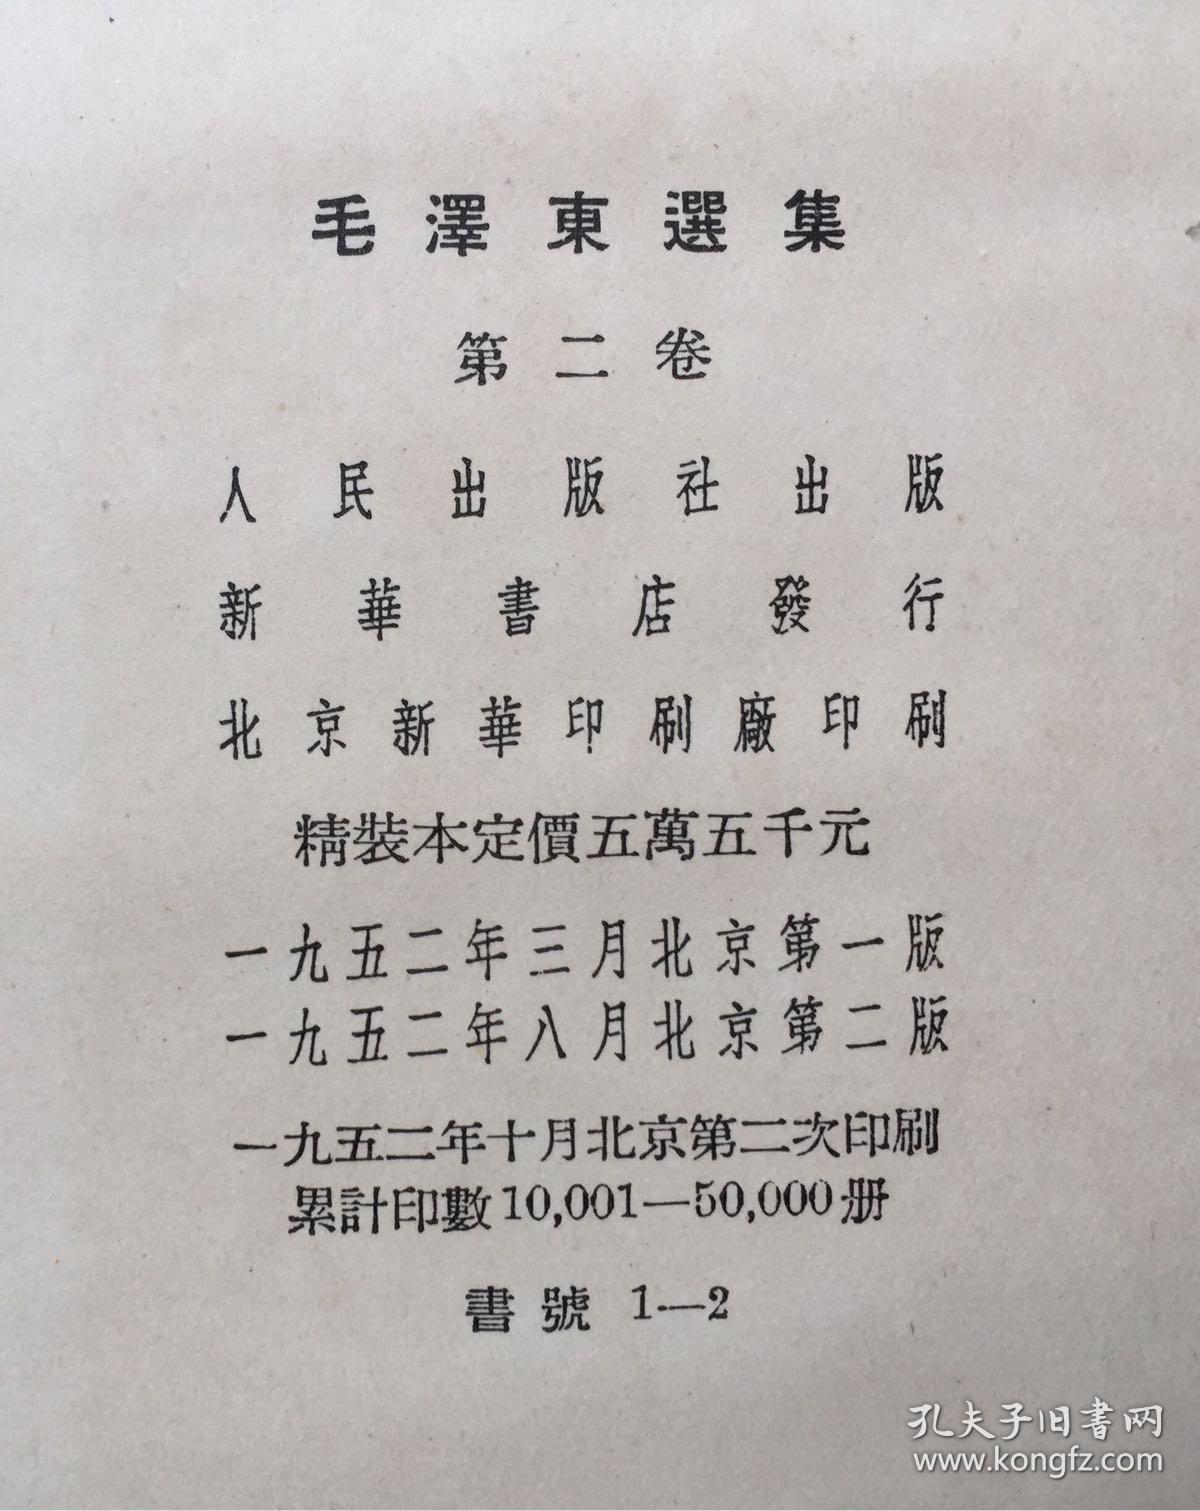 毛澤東選集
第二卷
人民出版社出版
新華書店發行
北京新華印刷廠印刷
精裝本定價五萬五千元
一九五二年三月北京第一版
一九五二年八月北京第二版
一九五二年十月北京第二次印刷
累計印數10,001—50,000册
書號 1—2
孔夫子旧書网
www.kongfz.com